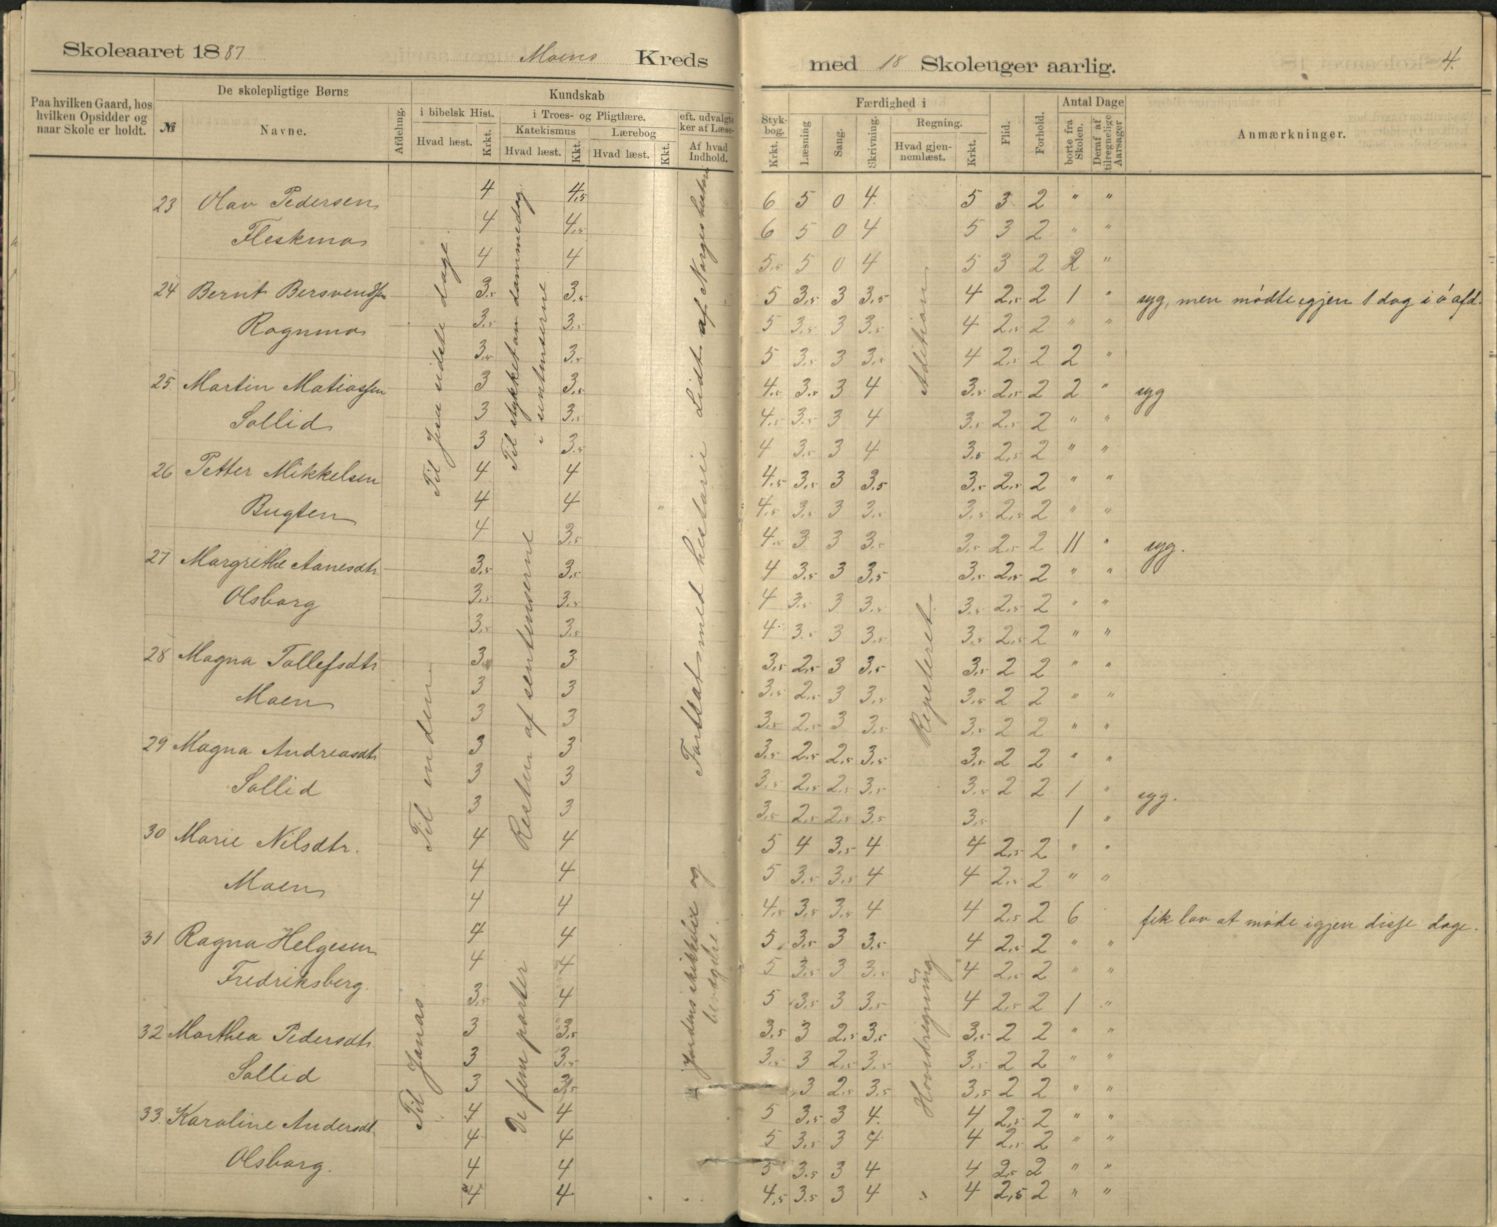 Skoleaaret 1887 Moens Kreds med 18 Skoleuger aarlig. 4.
Paa hvilken Gaard, hos hvilken Opsidder og naar Skole er holdt.
De skolepligtige Børns
№ Navne.
Afdeling.
Kundskab
i bibelsk Hist.
Hvad læst. Krkt.
i Troes- og Pligtlære.
Katekismus
Hvad læst. Kkt.
Lærebog
Hvad læst. Kkt.
eft. udvalgte ker af Læse-
Af hvad Indhold.
Styk- bog.
Krkt.
Færdighed i
Læsning
Sang.
Skrivning.
Regning.
Hvad gjen- nemlæst. Krkt.
Flid.
Forhold.
Antal Dage
borte fra Skolen.
Deraf af tilregnelige Aarsager
Anmærkninger.
23 Olav Pedersen 4 4,5 6 5 0 4 5 3 2 " "
Fleskmo 4 4,5 6 5 0 4 5 3 2 " "
4 4 5,5 5 0 4 5 3 2 2 "
24 Bernt Bersvendsen 3,5 3,5 5 3,5 3 3,5 4 2,5 2 1 " syg, men mødte igjen 1 dag i ø afd.
Rognmo 3,5 3,5 5 3,5 3 3,5 4 2,5 2 " "
3,5 3,5 5 3,5 3 3,5 4 2,5 2 2 "
25 Martin Matiassen 3 3,5 4,5 3,5 3 4 3,5 2,5 2 2 " syg
Sollid 3 3,5 4,5 3,5 3 4 3,5 2,5 2 " "
3 3,5 4 3,5 3 4 3,5 2,5 2 " "
26 Petter Mikkelsen 4 4 4,5 3,5 3 3,5 3,5 2,5 2 " "
Bugten 4 4 " 4,5 3,5 3 3,5 3,5 2,5 2 " "
4 3,5 4,5 3 3 3,5 3,5 2,5 2 11 " syg.
27 Margrethe Aanesdtr 3,5 3,5 4 3,5 3 3,5 3,5 2,5 2 " "
Olsborg 3,5 3,5 4 3,5 3 3,5 3,5 2,5 2 " "
3,5 3,5 4 3,5 3 3,5 3,5 2,5 2 " "
28 Magna Tollefsdtr 3 3 3,5 2,5 3 3,5 3,5 2 2 " "
Moen 3 3 3,5 2,5 3 3,5 3,5 2 2 " "
3 3 3,5 2,5 3 3,5 3,5 2 2 " "
29 Magna Andreasdtr 3 3 3,5 2,5 2,5 3,5 3,5 2 2 " "
Sollid 3 3 3,5 2,5 2,5 3,5 3,5 2 2 1 " syg.
3 3 3,5 2,5 2,5 3,5 3,5 1 "
30 Marie Nilsdtr. 4 4 5 4 3,5 4 4 2,5 2 " "
Moen 4 4 5 3,5 3,5 4 4 2,5 2 " "
4 4 4,5 3,5 3,5 4 4 2,5 2 6 fik lov at møde igjen disse dage.
31 Ragna Helgesen 4 4 5 3,5 3 3,5 4 2,5 2 " "
Fredriksberg. 4 4 5 3,5 3 3,5 4 2,5 2 " "
3,5 4 5 3,5 3 3,5 4 2,5 2 1 "
32 Marthea Pedersdtr 3 3,5 3,5 3 2,5 3,5 3,5 2 2 " "
Sollid 3 3,5 3,5 3 2,5 3,5 3,5 2 2 " "
3 3,5 3 2,5 3,5 3,5 2 2 " "
33 Karoline Andersdt 4 4 5 3,5 3 4 4 2,5 2 " "
Olsborg. 4 4 5 3,5 3 4 4 2,5 2 " "
4 4 5 3,5 3 4 4 2,5 2 " "
4 4 4,5 3,5 3 4 " 4 2,5 2 " "
Til Jesu sidste dage.
Til enden
Til Jonas
Til stykket om dommedag
i sentenserne
Resten af sentenserne
De fem parter
Lidt af Norges historie
Fortsat med historie
Jordens skikkelse og
bevægelse.
Adition
Repeteret
Hovedregning